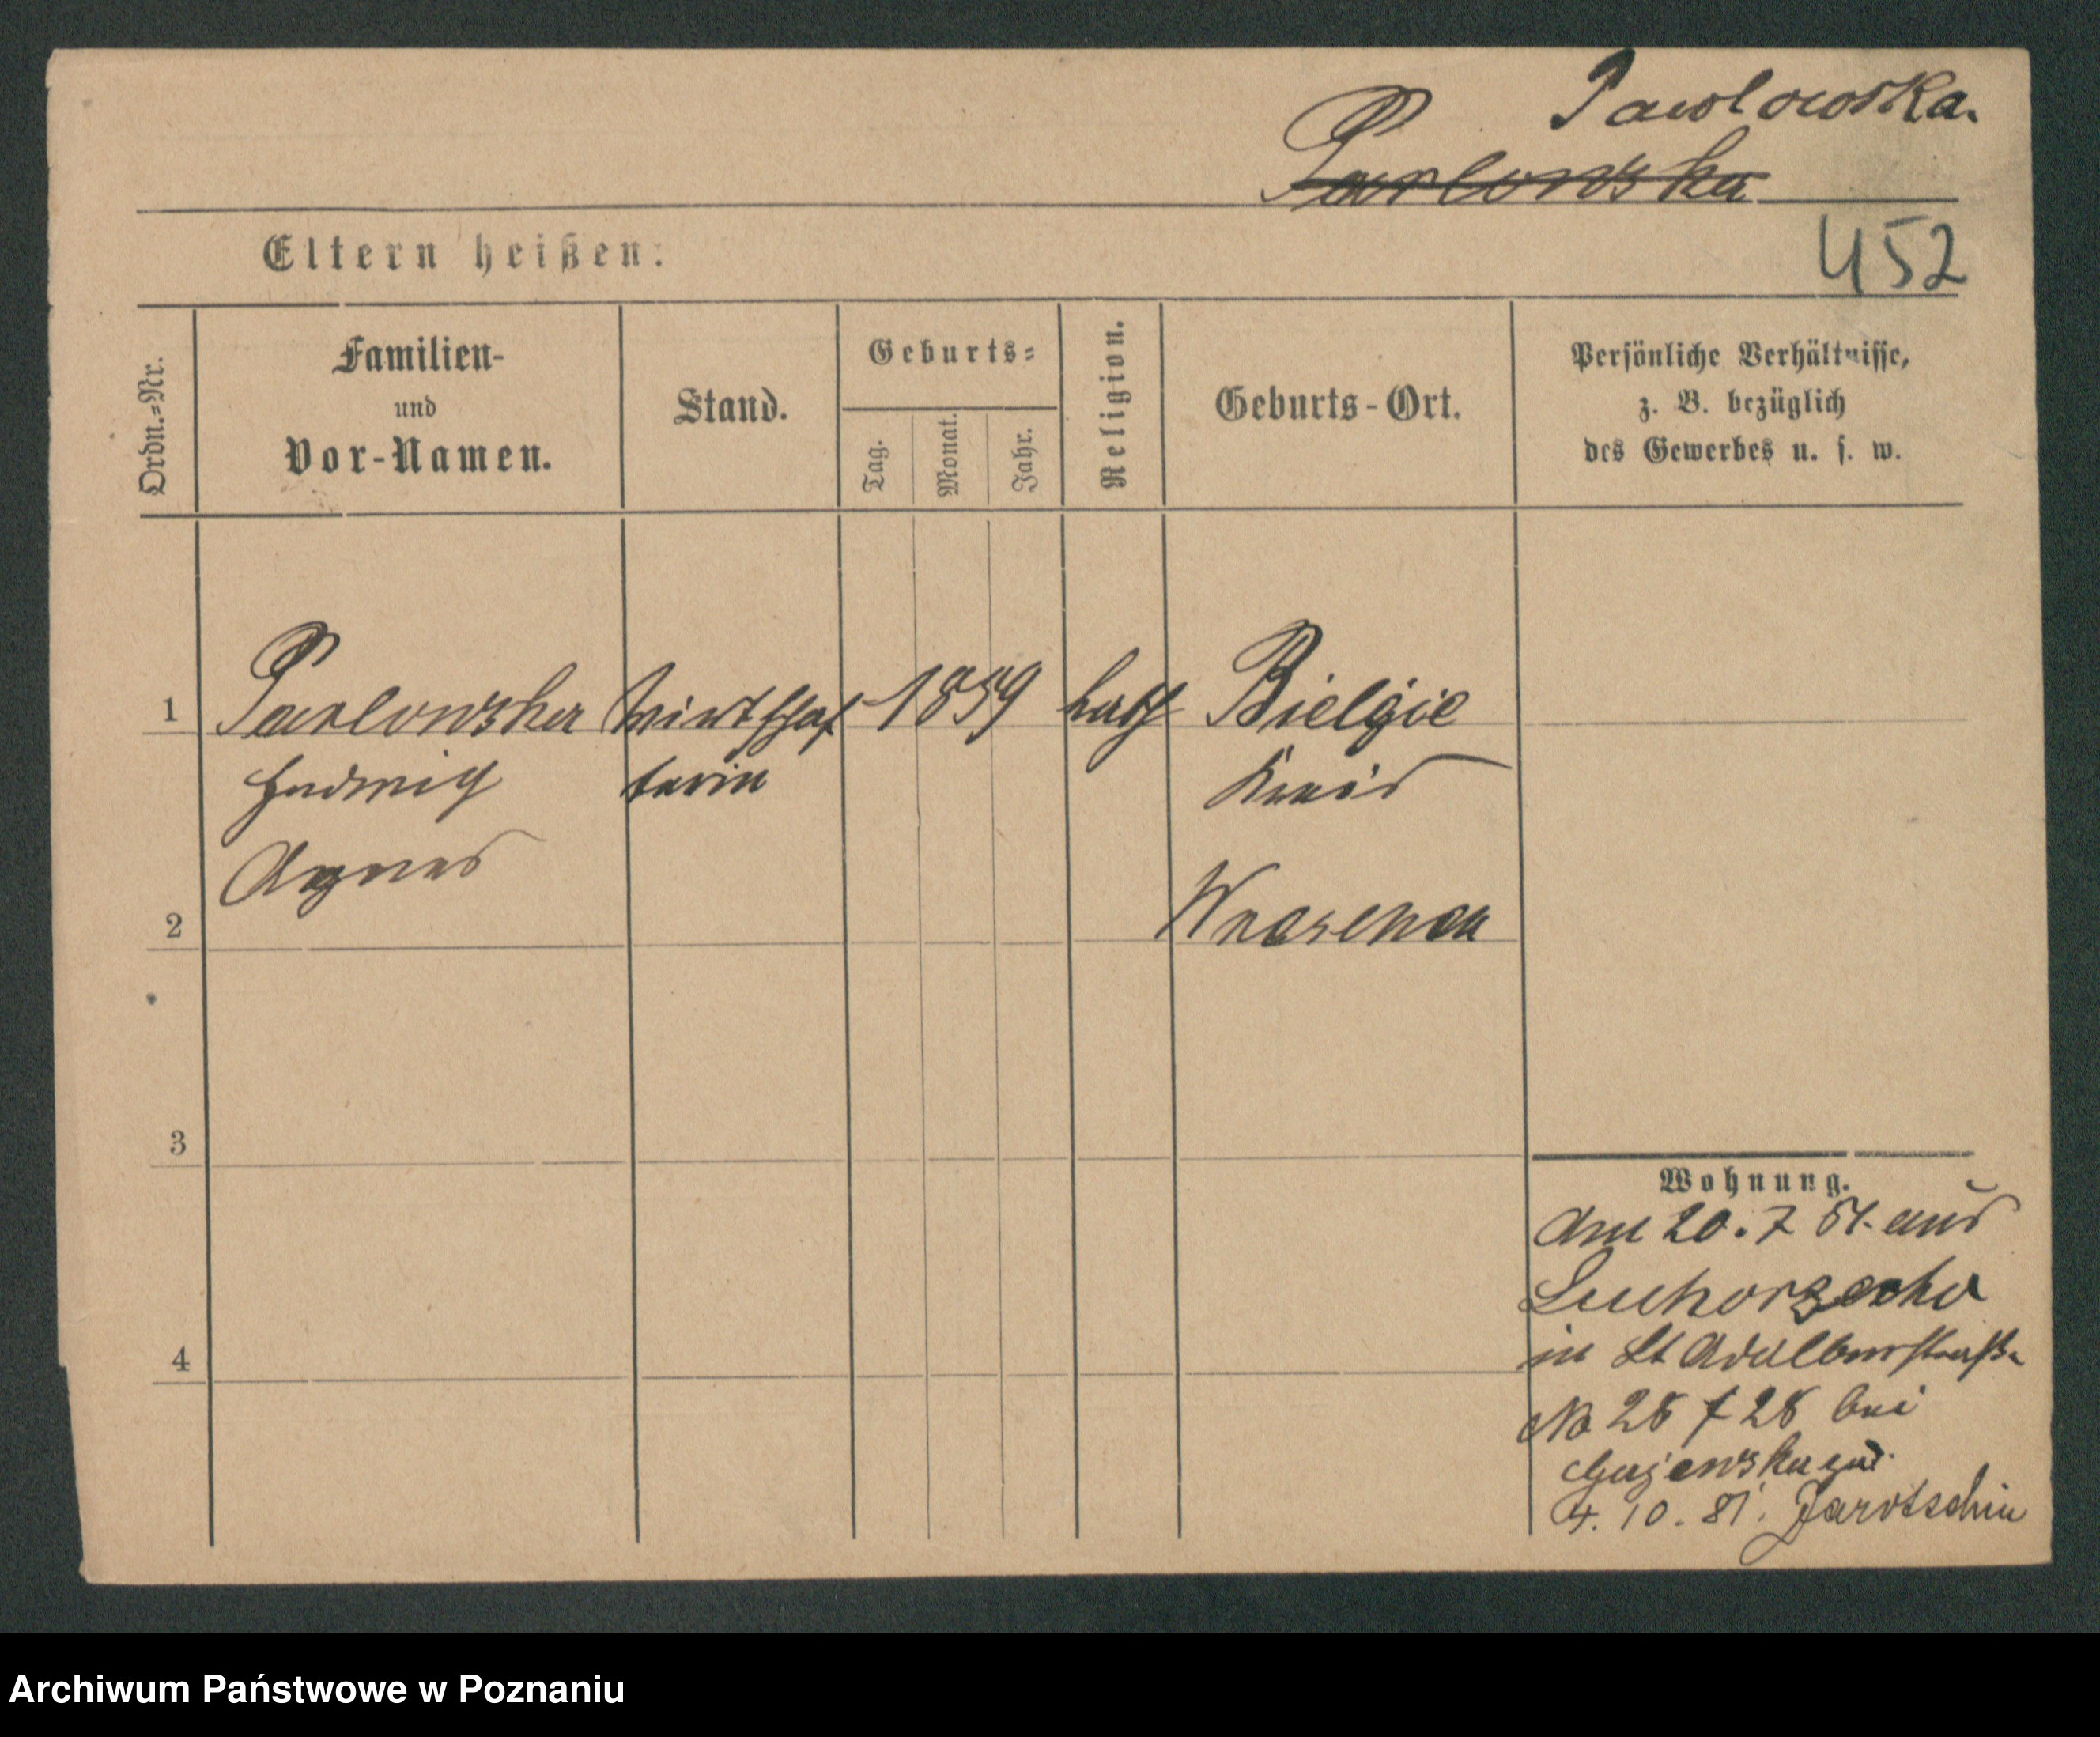 Pawlowska.
Parlowska
452
Eltern heißen:
Ordn.=Nr.
Familien-
und
Vor-Namen.
Stand.
Geburts=
Tag.
Monat.
Jahr.
Religion.
Geburts-Ort.
Persönliche Verhältnisse,
z. B. bezüglich
des Gewerbes u. s. w.
1 Parlowska Wirtschaf 1859 kath Bielgie
Hedwig terin Kreis
Agnes
2 Wreschen
3
4
Wohnung.
Am 20. 7 81. aus
in St Adalbertstraße
No 28 f 28 bei
Gajewska
4. 10. 81. Jarotschin
Archiwum Państwowe w Poznaniu